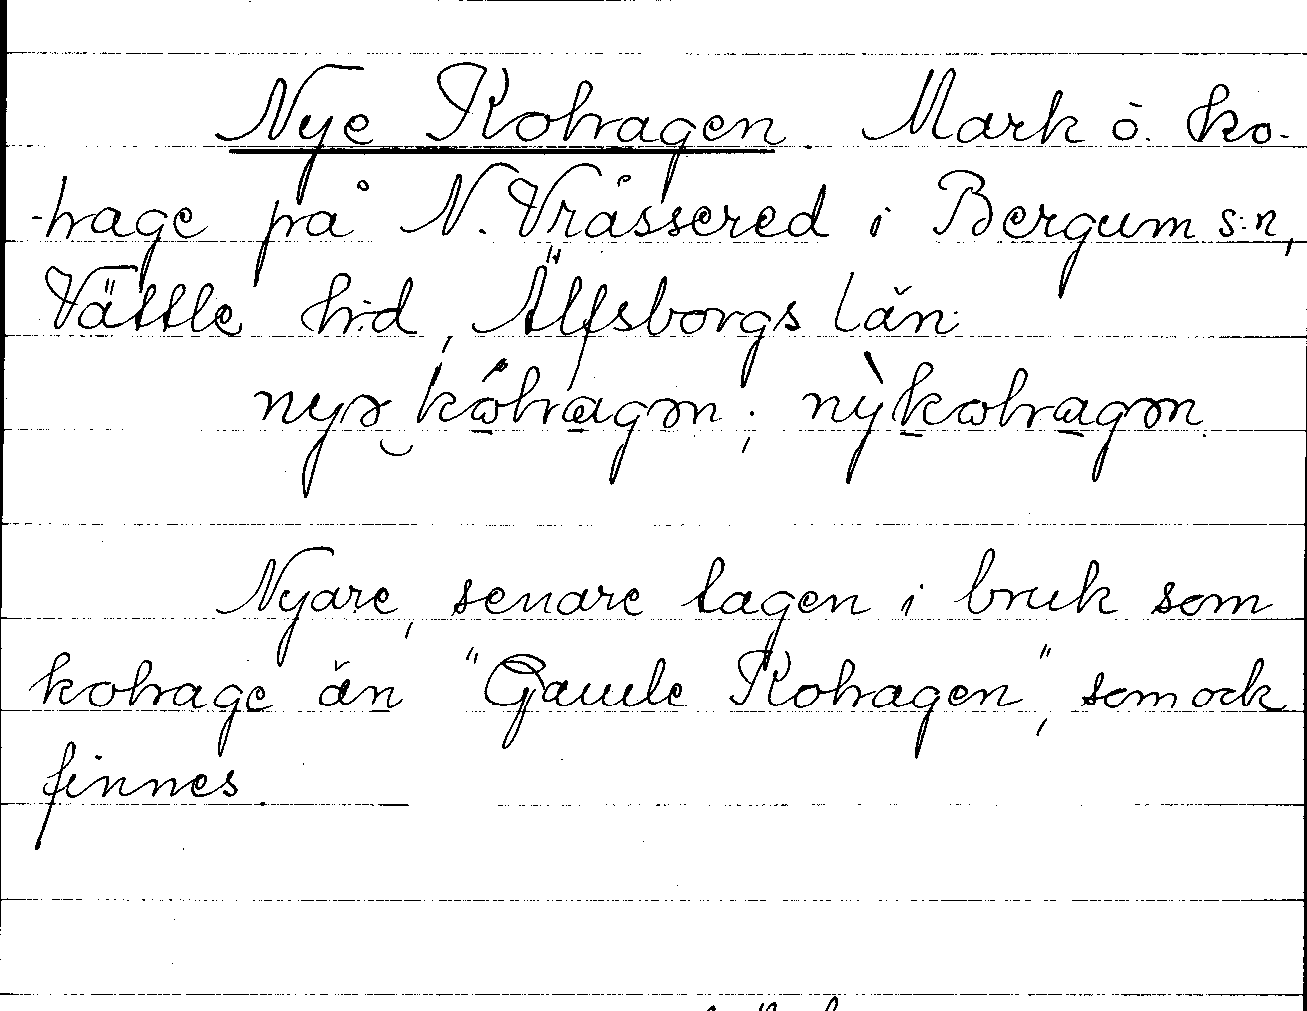 Nye Kohagen. Mark o. ko-
-hage på N. Vrässered i Bergum s:n,
Vättle h:d, Älfsborgs län.
nyə kóhagən; nỳkohagən.
Nyare, senare tagen i bruk som
kohage än "Gamle Kohagen", som ock
finnes.